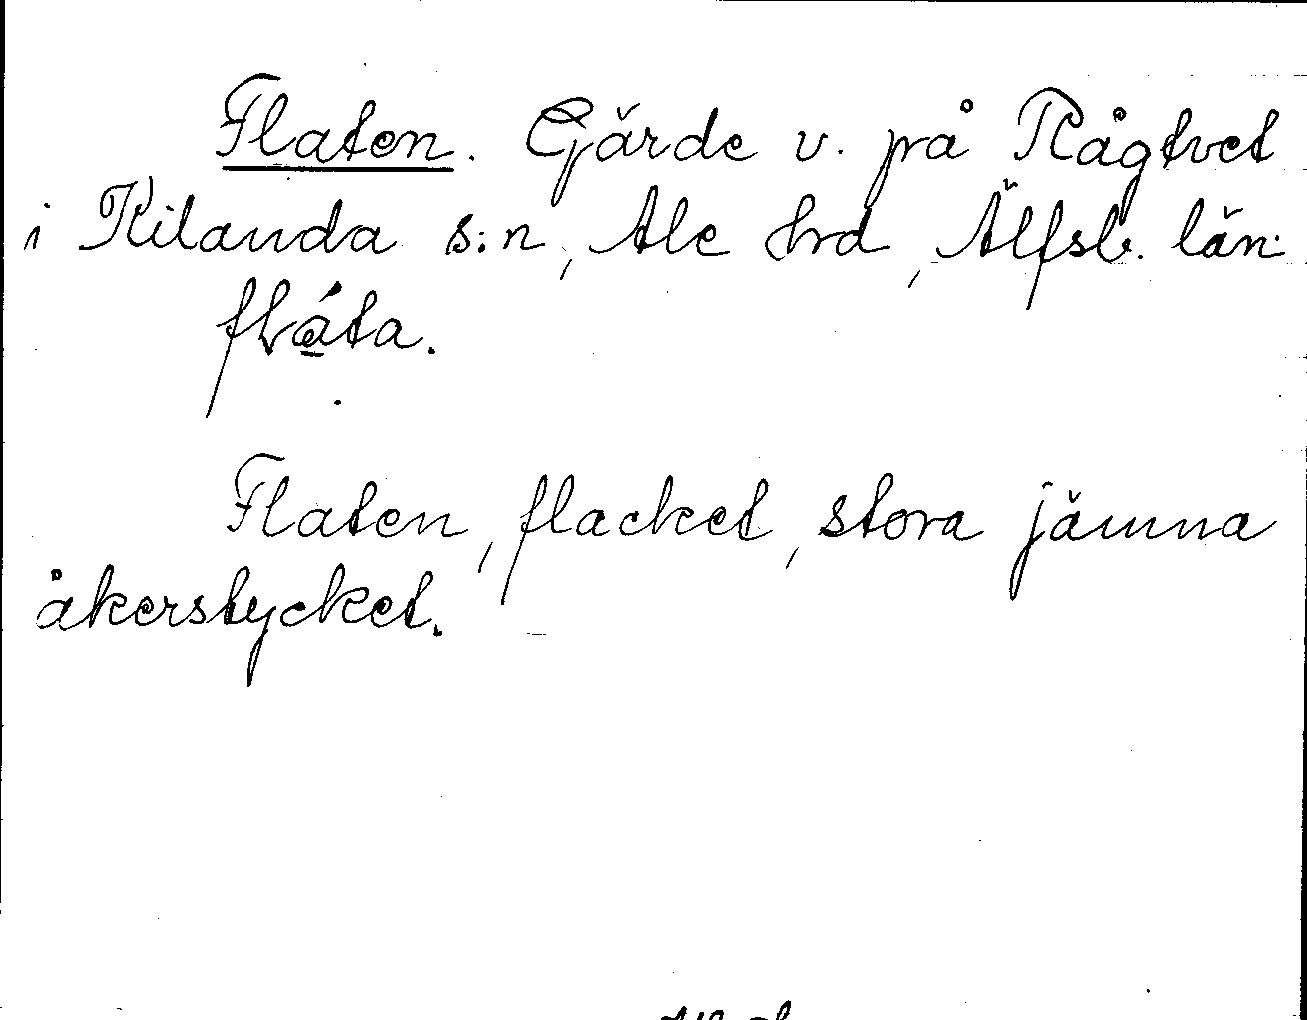 Flaten. Gärde v. på Rågtvet
i Kilanda s:n, Ale hrd, Älfsb. län
flåta.
Flaten, flacket, stora jämna
åkerstycket.